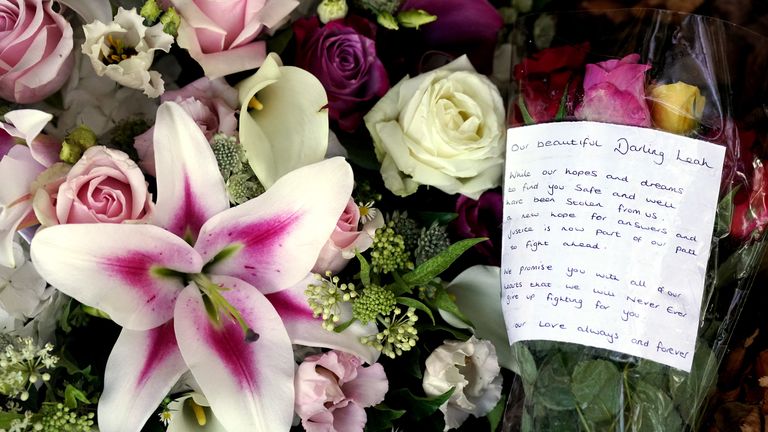 Our beautiful Darling Leah
While our hopes and dreams
to find you safe and well
have been stolen from us.
a new hope for answers and
Justice is now part of our path
to fight ahead.
We promise you with all of our
hearts that we will Never Ever
give up fighting for you
our Love always and forever